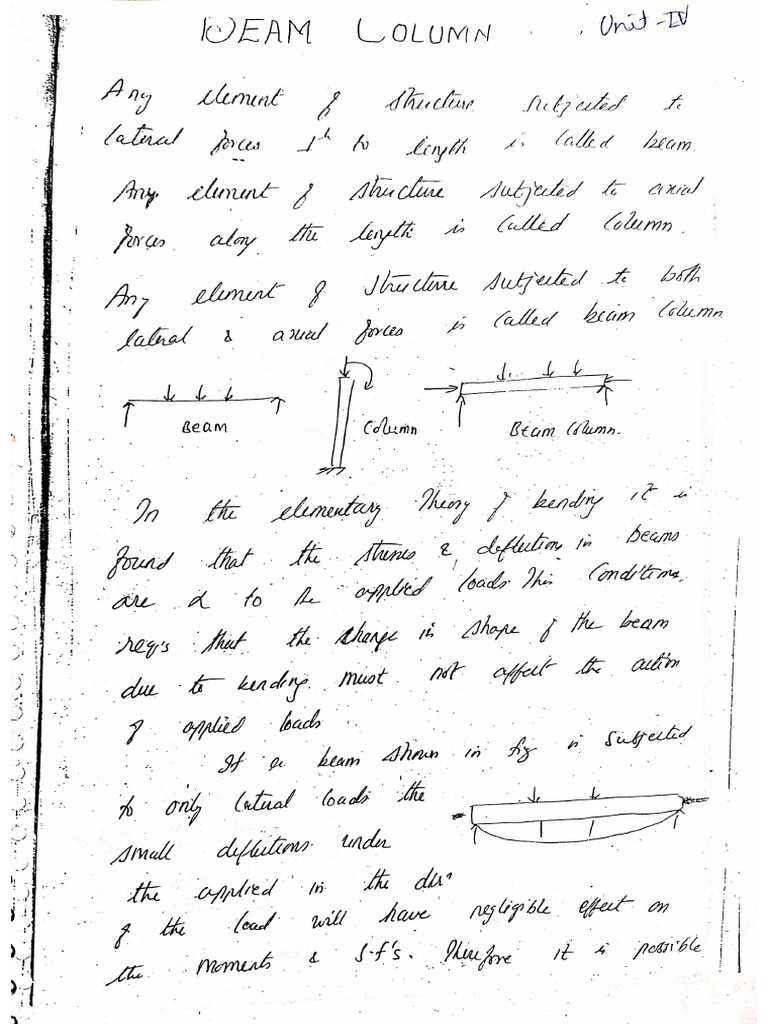 BEAM COLUMN
Unit-IV
Any element of structure subjected to
lateral forces ⊥r to length is called beam.
Any element of structure subjected to axial
forces along the length is called column.
Any element of structure subjected to both
lateral & axial forces is called beam column
Beam
Column
Beam Column.
In the elementary Theory of bending it is
found that the stresses & deflection in beams
are α to the applied loads. This Conditions
req's that the change in shape of the beam
due to bending must not affect the action
of applied loads
If a beam shown in fig is subjected
to only lateral loads the
small deflections under
the applied in the dirn
of the load will have negligible effect on
the Moments & S.f's. Therefore it is possible